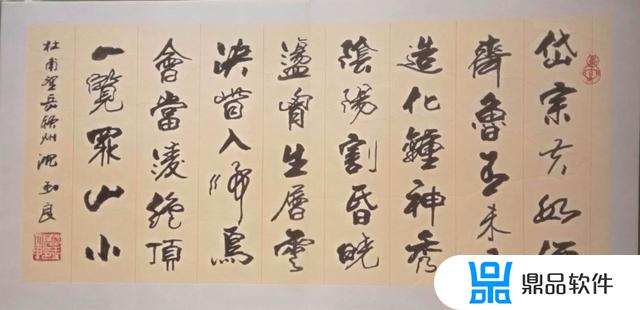 岱宗夫如何
齊魯青未
造化鐘神秀
陰陽割昏曉
盪胷生層雲
決眥入歸鳥
會當淩絕頂
一覽眾山小
杜甫望岳
鼎品软件